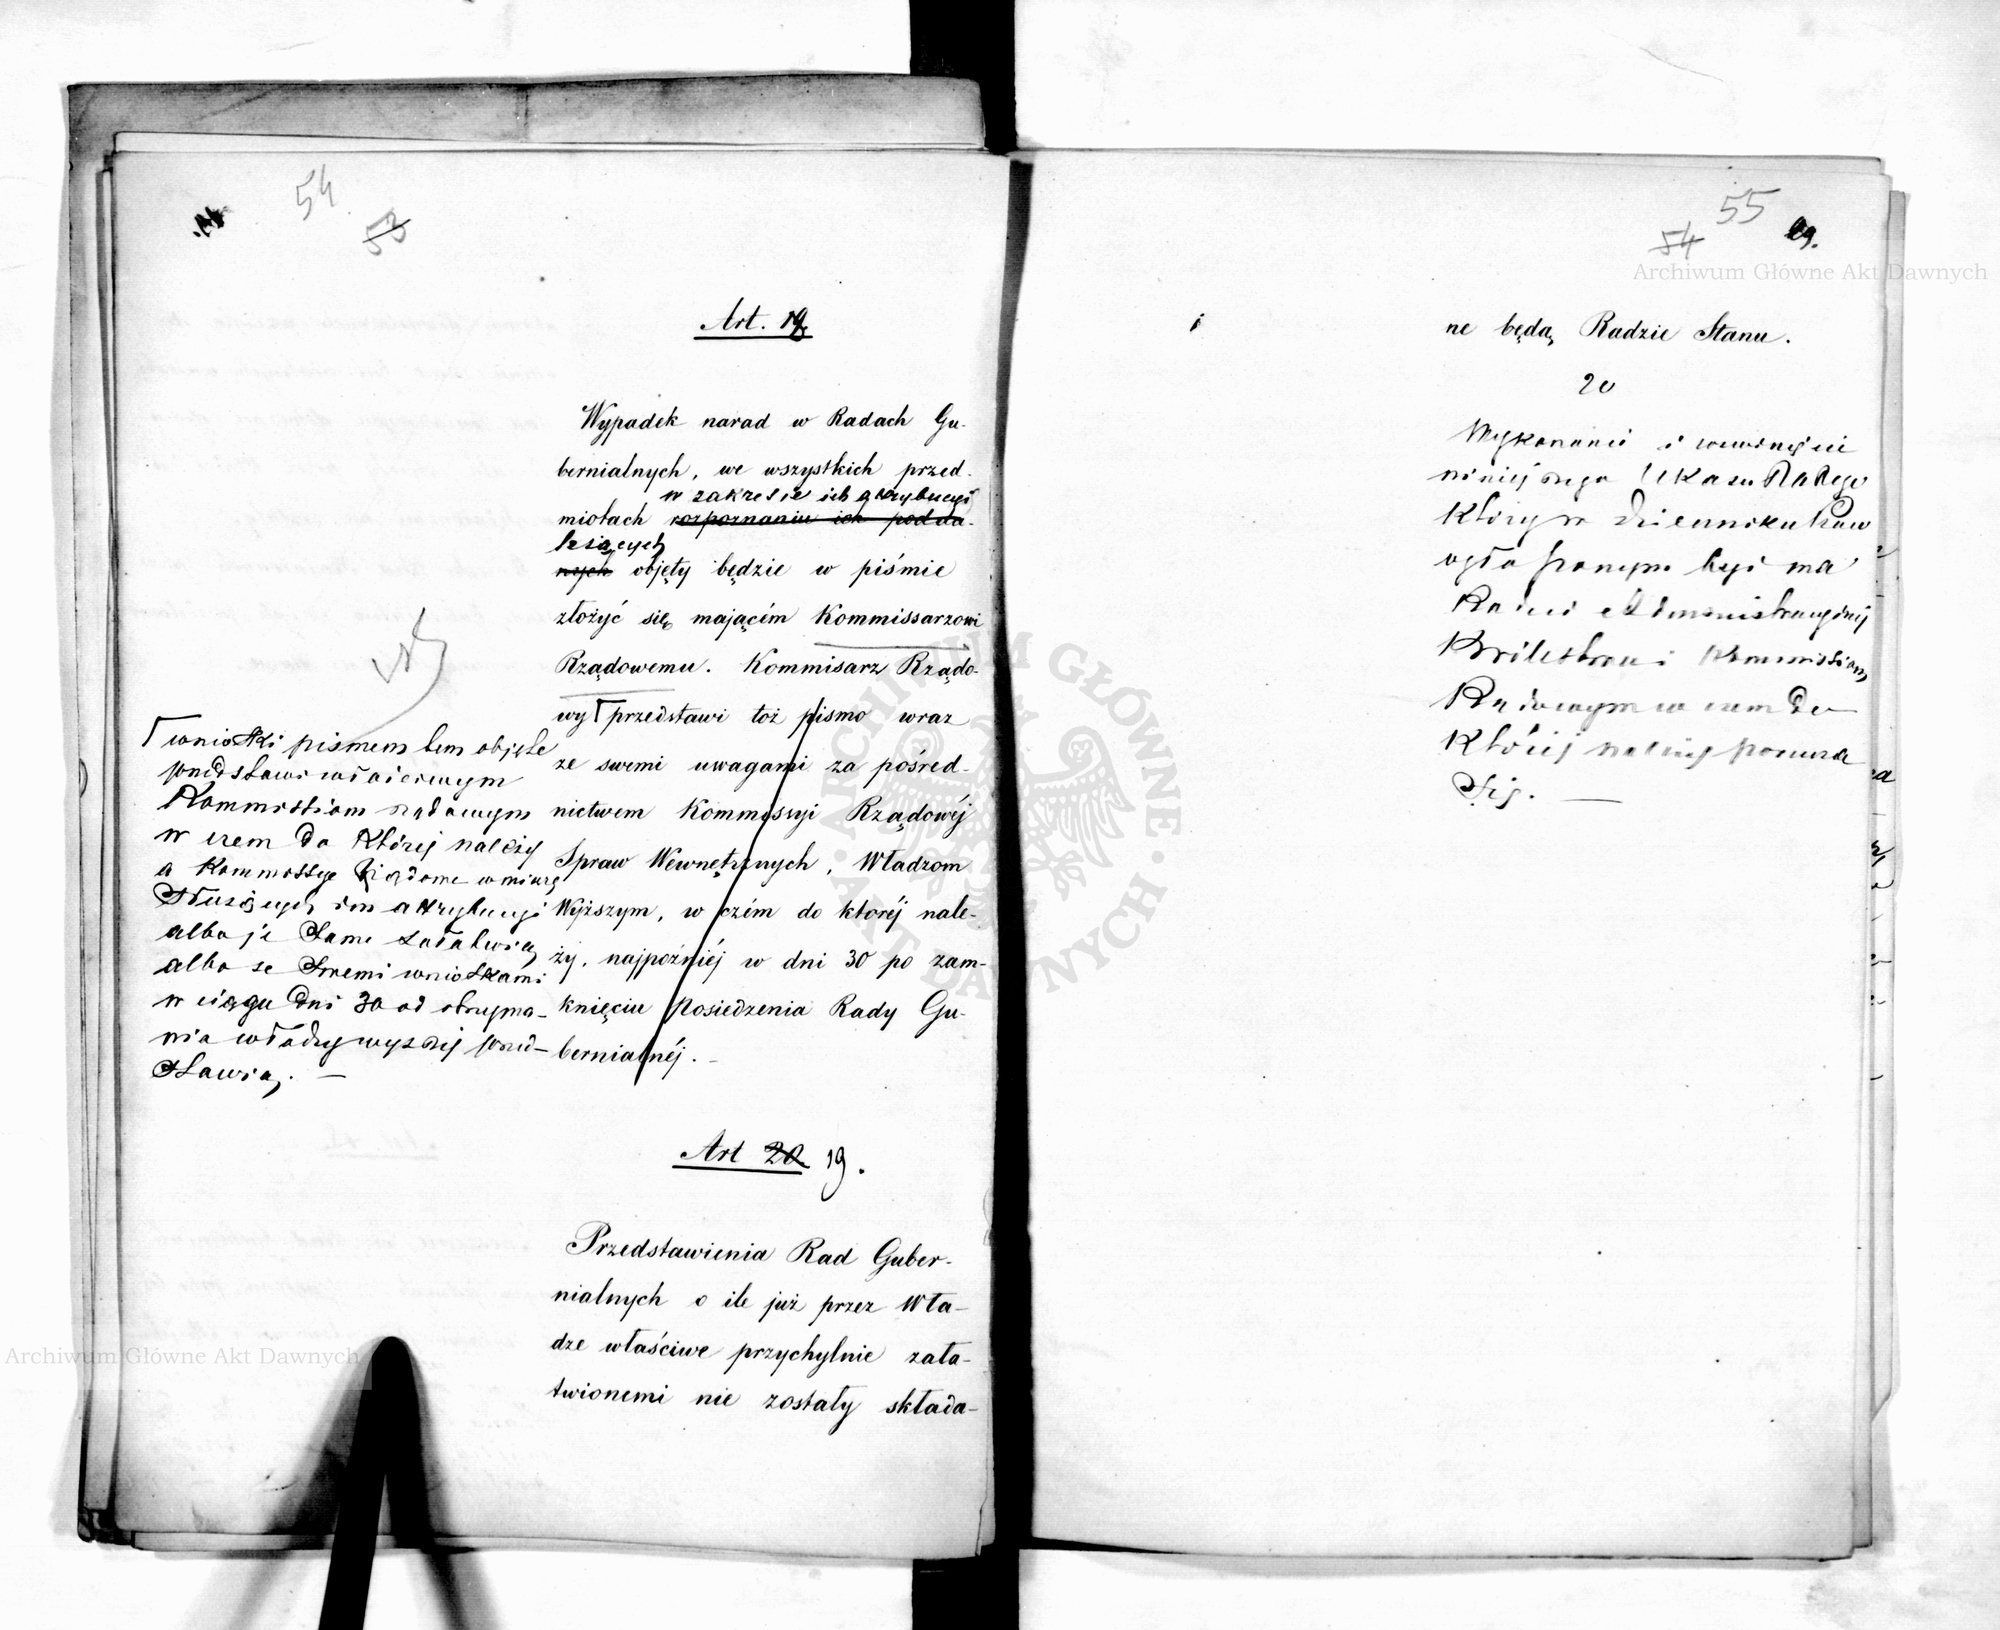 54
53
Art. 19
Wypadek narad w Radach Gu-
bernialnych, we wszystkich przed-
w zakresie ich attrybucyi
miotach rozpoznaniu ich podda-
leżących
nych objęty będzie w piśmie
złożyć się mającém Kommissarzowi
Rządowemu. Kommisarz Rządo-
wy przedstawi toż pismo wraz
ze swemi uwagami za pośred-
nictwem Kommissyi Rządowéj
Spraw Wewnętrznych, Władzom
Wyższym, w czém do któréj nale-
ży, najpóźniéj w dni 30 po zam-
knięciu Posiedzenia Rady Gu-
bernialnéj. -
wnioski pismem tem objęte
przedstawi właściwym
Kommissiom rządowym
w czem do której należy
a Kommissye Rządowe w miarę
służących im attrybucyi
albo je same załatwią
albo ze swemi wnioskami
w ciągu dni 30 od otrzyma-
nia władzy wyższej przed-
stawią. —
Art 20 19.
Przedstawienia Rad Guber-
nialnych o ile już przez Wła-
dze właściwe przychylnie zała-
twionemi nie zostały składa-
55
54
ne będą Radzie Stanu.
20
Wykonanie i
niniejszego Ukazu
który w Dzienniku Praw
ogłoszonym być ma
Radzie Administracyjnej
Królestwa i Kommissiom
Rządowym w czem do
której należy porucza
się. —
Archiwum Główne Akt Dawnych
Archiwum Główne Akt Dawnych
ARCHIWUM GŁÓWNE
AKT DAWNYCH